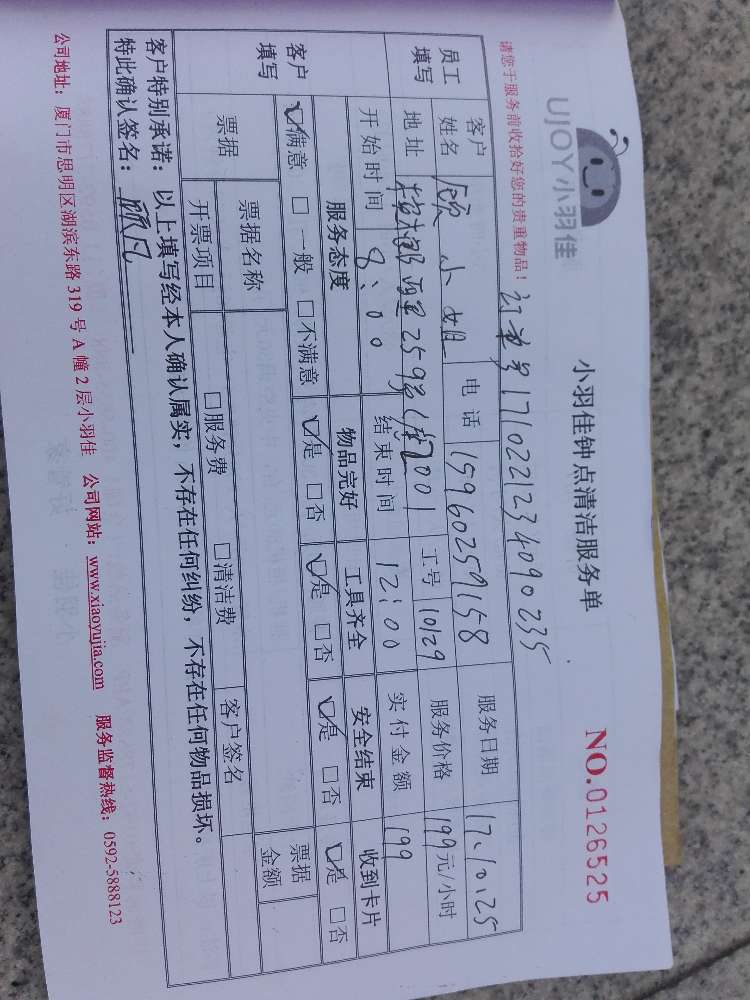 UJOY小羽佳
小羽佳钟点清洁服务单
NO.0126525
请您于服务前收拾好您的贵重物品!
订单号1710221234090235
员工填写 客户姓名 顾小姐 电话 15960259158 服务日期 17.10.25
地址 259号 2001 工号 10129 服务价格 199元/小时
开始时间 8:00 结束时间 12:00 实付金额 199
客户填写 服务态度 物品完好 工具齐全 安全结束 收到卡片
☑满意 □一般 □不满意 ☑是 □否 ☑是 □否 ☑是 □否 ☑是 □否
票据 票据名称 票据金额
开票项目 □服务费 □清洁费 客户签名
客户特别承诺:以上填写经本人确认属实,不存在任何纠纷,不存在任何物品损坏。
特此确认签名:
公司地址:厦门市思明区湖滨东路319号A幢2层小羽佳 公司网站:www.xiaoyujia.com 服务监督热线:0592-5888123